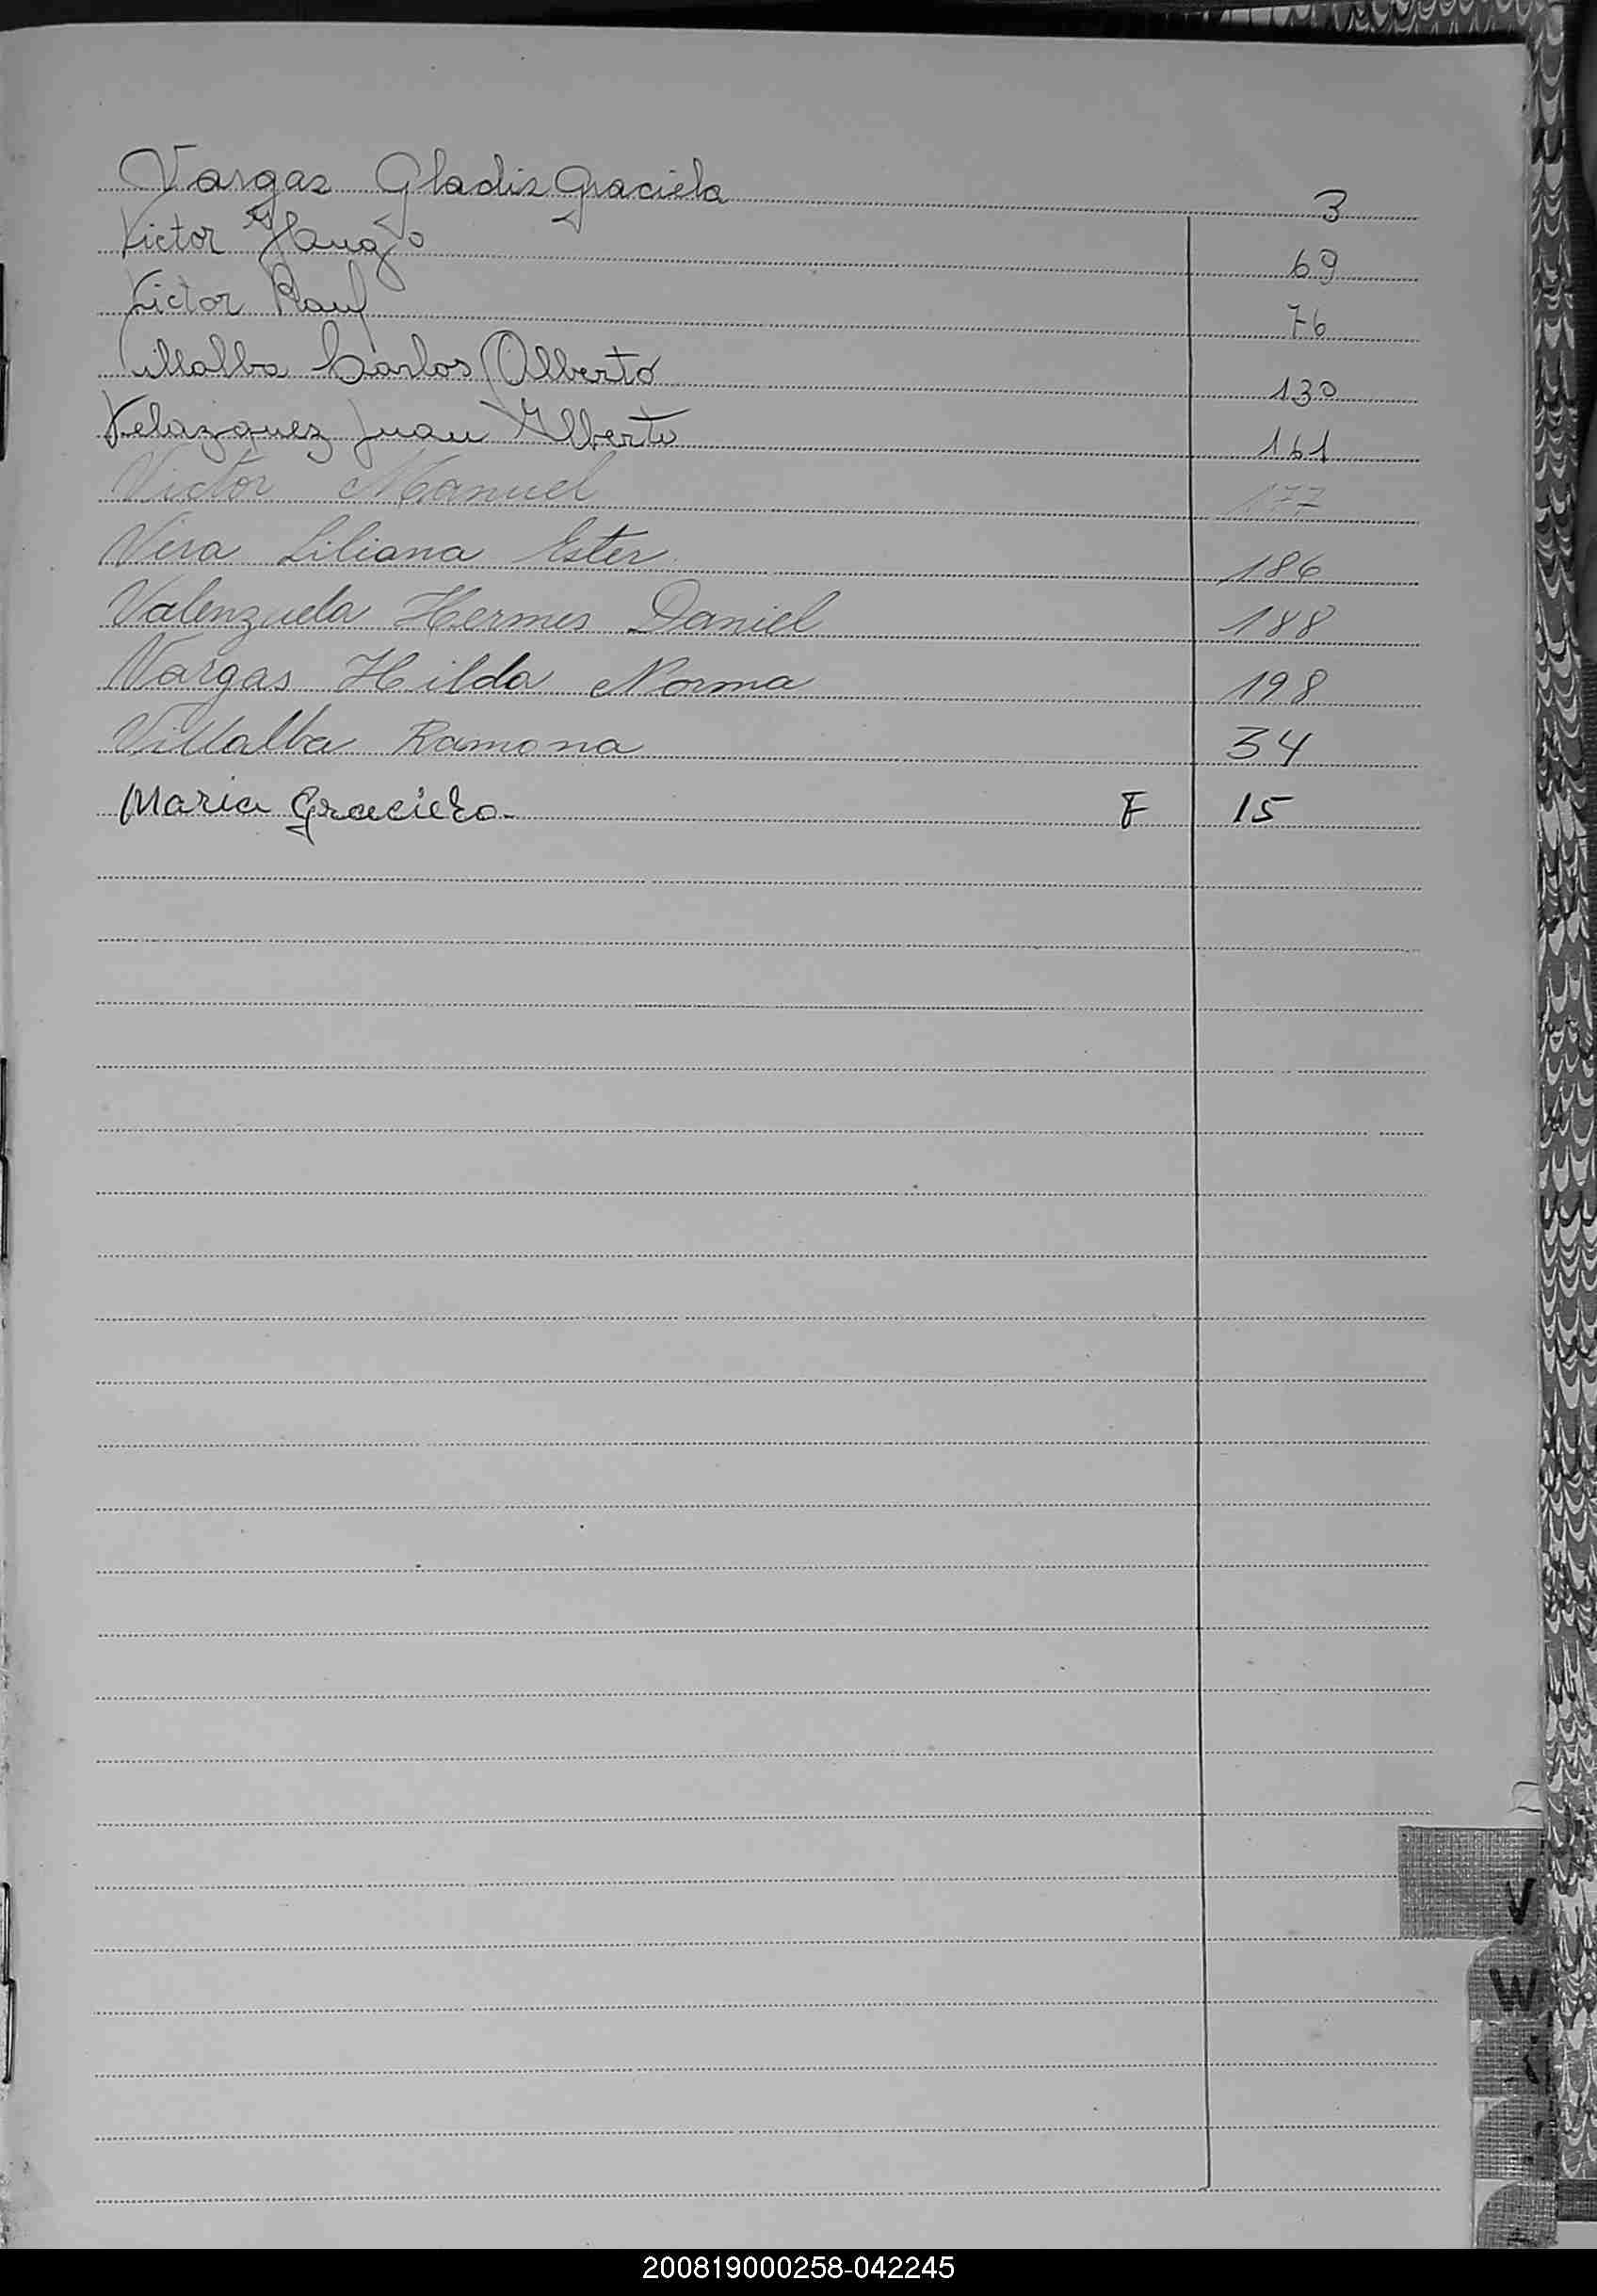 Vargas Gladis Graciela 3
Victor 69
Victor Raul 76
Villalba Carlos Alberto 130
Velazquez Juan Alberto 161
Victor Manuel 177
Vera Liliana Ester 186
Valenzuela Hermes Daniel 188
Vargas Hilda Norma 198
Villalba Ramona 34
Maria Graciela F 15
V
W
200819000258-042245